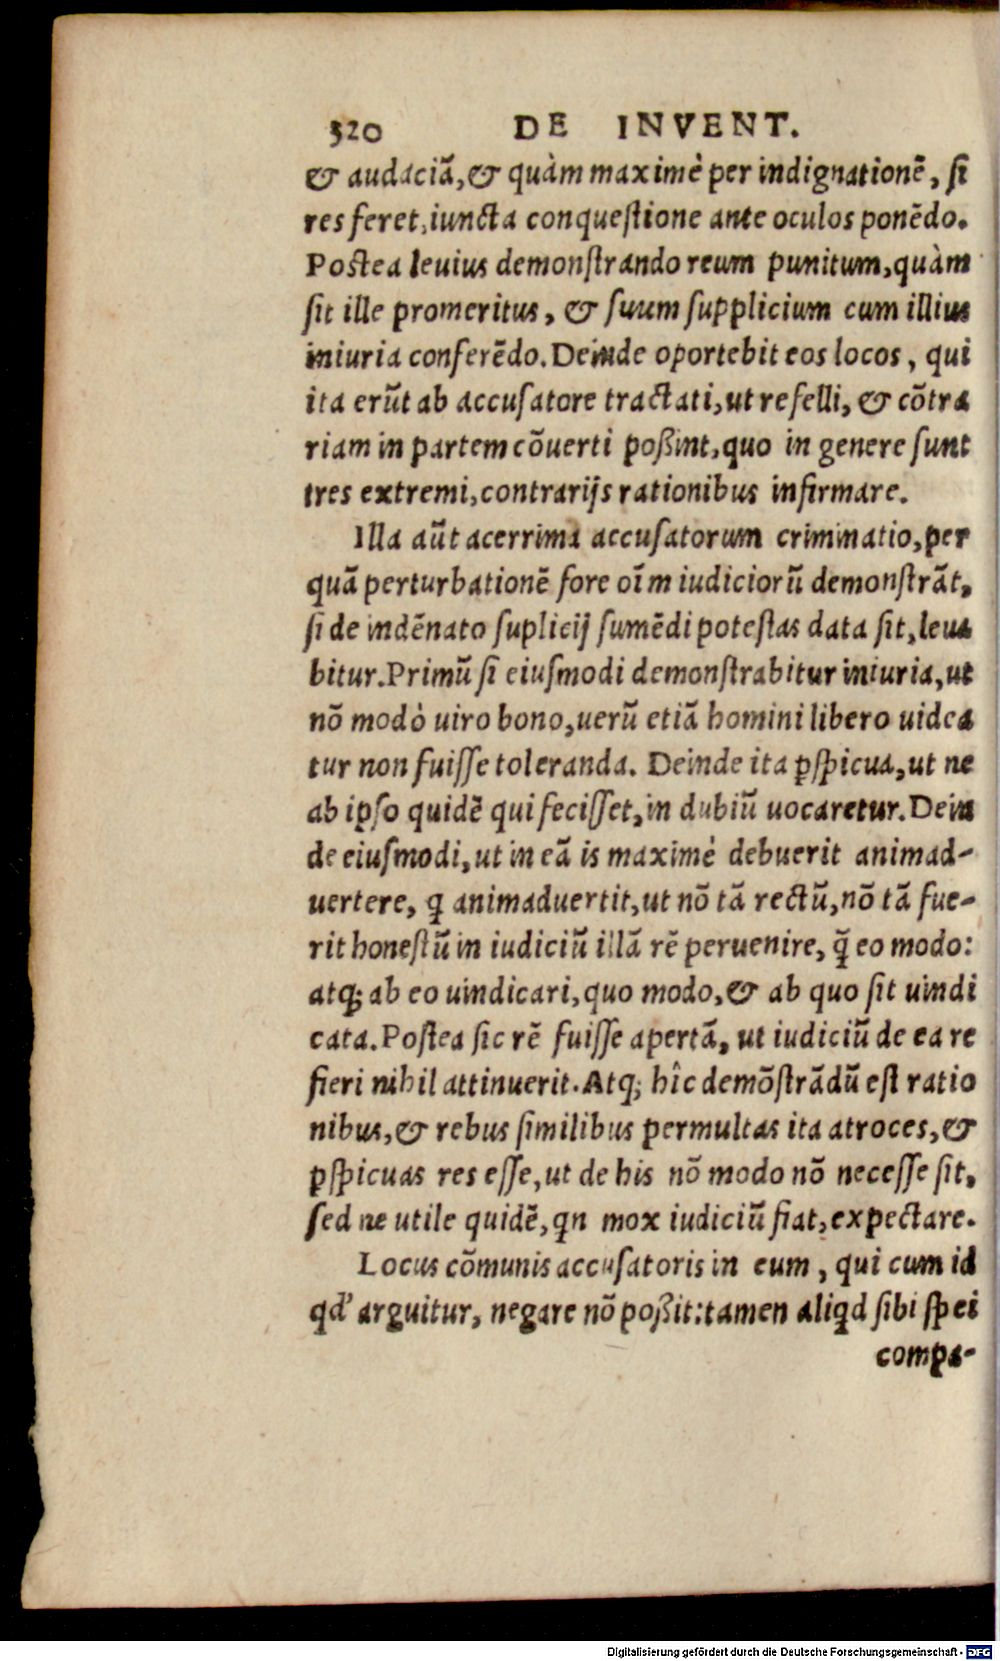 320 DE INVENT.
& audaciã, & quàm maximè per indignationẽ, ſi
res feret, iuncta conqueſtione ante oculos ponẽdo.
Postea leuius demonſtrando reum punitum, quàm
ſit ille promeritus, & ſuum ſupplicium cum illius
iniuria conferẽdo. Deinde oportebit eos locos, qui
ita erũt ab accuſatore tractati, ut refelli, & cõtra
riam in partem cõuerti poßint, quo in genere ſunt
tres extremi, contrarijs rationibus infirmare.
Illa aũt acerrima accuſatorum criminatio, per
quã perturbationẽ fore oĩm iudiciorũ demonſtrãt,
ſi de indẽnato ſuplicij ſumẽdi poteſtas data ſit, leua
bitur. Primũ ſi eiuſmodi demonſtrabitur iniuria, ut
nõ modò uiro bono, uerũ etiã homini libero uidea
tur non fuiſſe toleranda. Deinde ita ꝑſpicua, ut ne
ab ipſo quidẽ qui feciſſet, in dubiũ uocaretur. Dein
de eiuſmodi, ut in eã is maximè debuerit animad-
uertere, q animaduertit, ut nõ tã rectũ, nõ tã fue-
rit honeſtũ in iudiciũ illã rẽ peruenire, q̃ eo modo:
atq; ab eo uindicari, quo modo, & ab quo ſit uindi
cata. Poſtea ſic rẽ fuiſſe apertã, ut iudiciũ de ea re
fieri nihil attinuerit. Atq; hîc demõſtrãdũ eſt ratio
nibus, & rebus ſimilibus permultas ita atroces, &
ꝑſpicuas res eſſe, ut de his nõ modo nõ neceſſe ſit,
ſed ne utile quidẽ, qn mox iudiciũ fiat, expectare.
Locus cõmunis accuſatoris in eum, qui cum id
qd' arguitur, negare nõ poßit: tamen aliqd ſibi ſpei
compa-
Digitalisierung gefördert durch die Deutsche Forschungsgemeinschaft - DFG